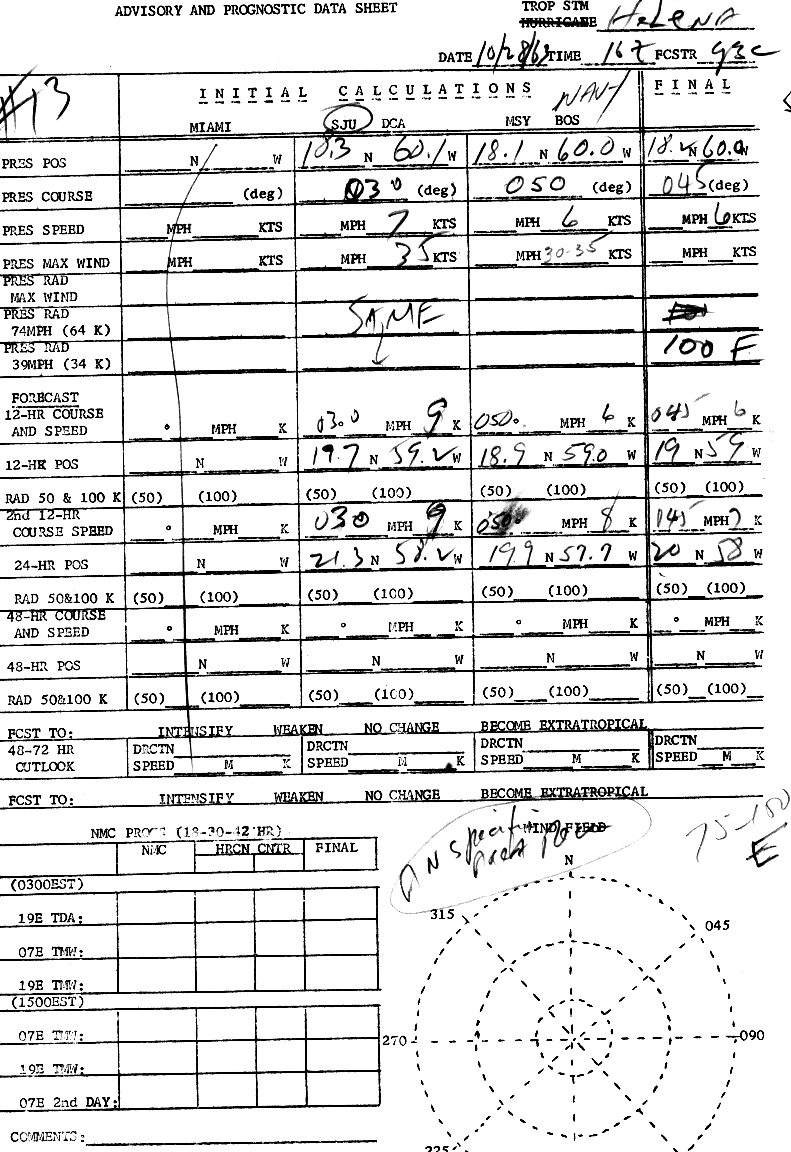 ADVISORY AND PROGNOSTIC DATA SHEET
TROP STM
HURRICANE HELENA
DATE 10/28/63 TIME 16Z FCSTR
#13
INITIAL CALCULATIONS FINAL
NAVY
MIAMI SJU DCA MSY BOS
PRES POS N W 18.3 N 60.1 W 18.1 N 60.0 W 18.2 N 60.0 W
PRES COURSE (deg) 030 (deg) 050 (deg) 045 (deg)
PRES SPEED MPH KTS MPH 7 KTS MPH 6 KTS MPH 6 KTS
PRES MAX WIND MPH KTS MPH 35 KTS MPH 30-35 KTS MPH KTS
PRES RAD
MAX WIND
PRES RAD
74MPH (64 K) SAME
PRES RAD
39MPH (34 K) 100 E
FORECAST
12-HR COURSE
AND SPEED ° MPH K 030 ° MPH 9 K 050 ° MPH 6 K 045 MPH 6 K
12-HR POS N W 19.7 N 59.2 W 18.9 N 59.0 W 19 N 59 W
RAD 50 & 100 K (50) (100) (50) (100) (50) (100) (50) (100)
2nd 12-HR
COURSE SPEED ° MPH K 030 MPH 9 K 050 ° MPH 8 K 045 MPH 7 K
24-HR POS N W 21.3 N 58.2 W 19.9 N 57.7 W 20 N 58 W
RAD 50&100 K (50) (100) (50) (100) (50) (100) (50) (100)
48-HR COURSE
AND SPEED ° MPH K ° MPH K ° MPH K ° MPH K
48-HR POS N W N W N W N W
RAD 50&100 K (50) (100) (50) (100) (50) (100) (50) (100)
FCST TO: INTENSIFY WEAKEN NO CHANGE BECOME EXTRATROPICAL
48-72 HR DRCTN DRCTN DRCTN DRCTN
OUTLOOK SPEED M K SPEED M K SPEED M K SPEED M K
FCST TO: INTENSIFY WEAKEN NO CHANGE BECOME EXTRATROPICAL
NMC PROGS (18-30-42 HR)
WIND FIELD
75-100
E
NMC HRCN CNTR FINAL
N
(0300EST)
315 045
19E TDA:
07E TMW:
19E TMW:
(1500EST)
07E TMW:
270 090
19E TMW:
07E 2nd DAY:
COMMENTS:
225